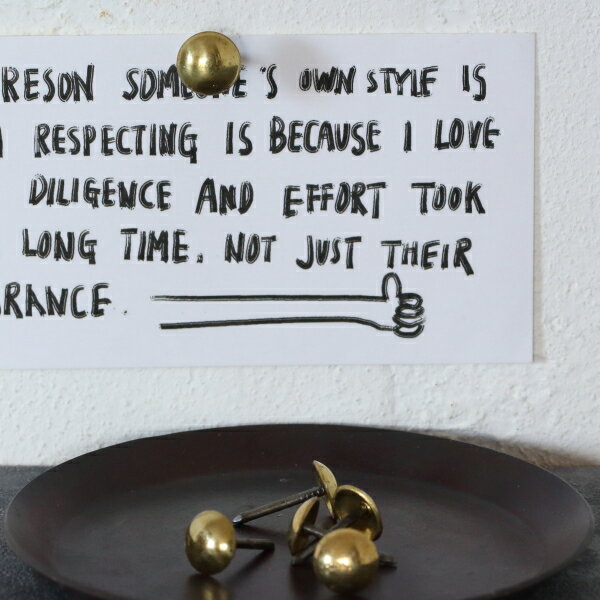 RESON SOMEONE'S OWN STYLE IS
RESPECTING IS BECAUSE I LOVE
DILIGENCE AND EFFORT TOOK
LONG TIME. NOT JUST THEIR
RANCE.